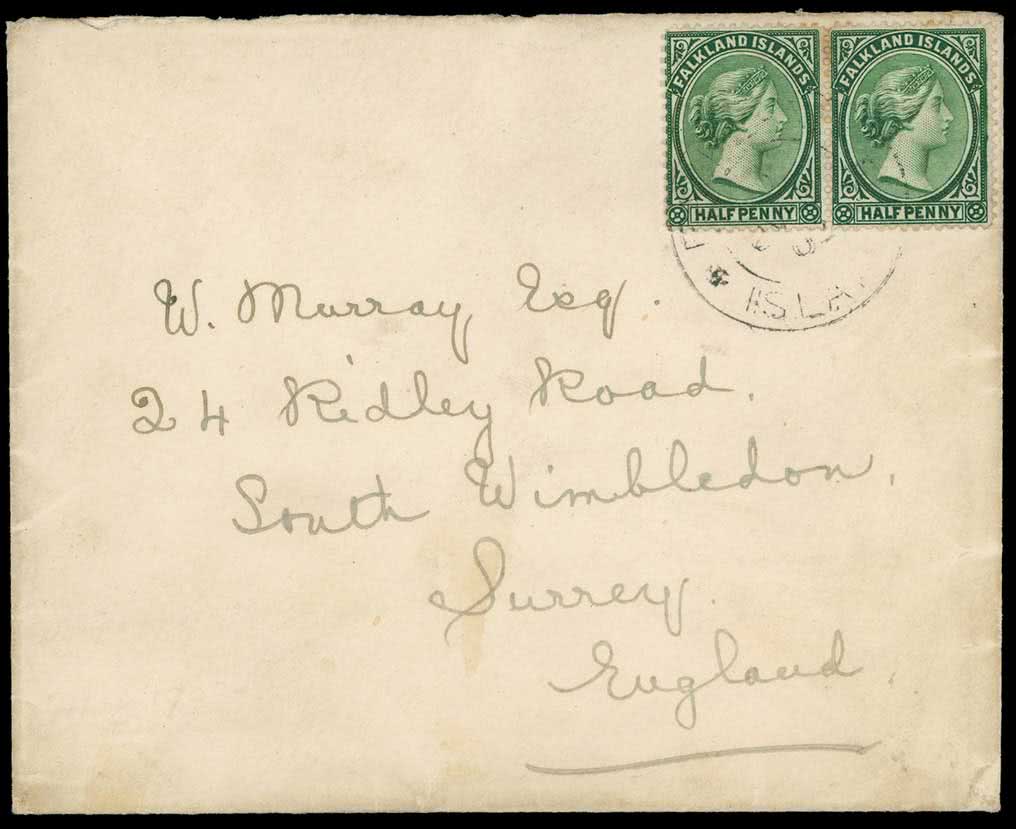 FALKLAND ISLANDS FALKLAND ISLANDS
HALFPENNY HALFPENNY
ISLA
W. Murray Esq.
24 Ridley Road,
South Wimbledon,
Surrey.
England.